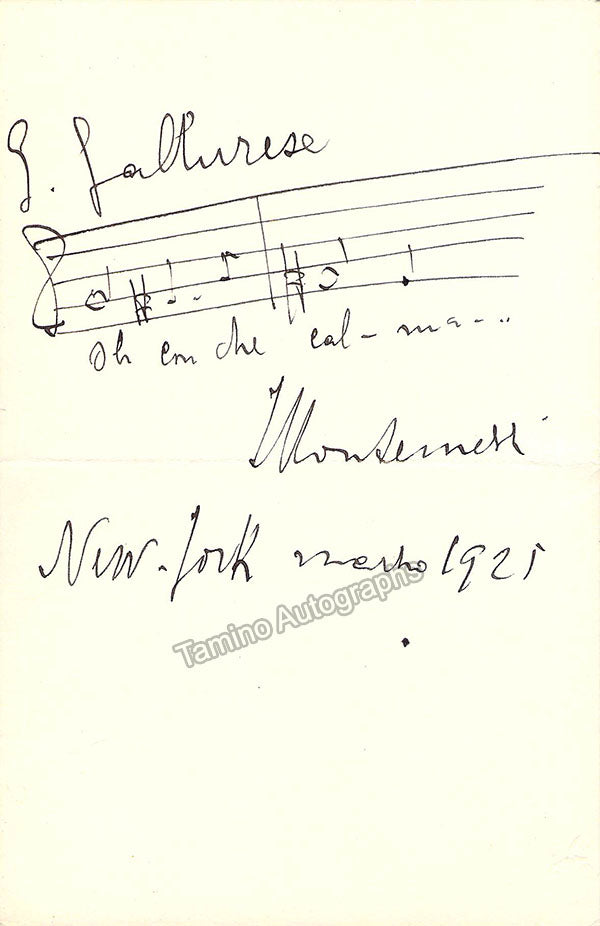 G. Gallurese
Oh con che cal- ma...
Montemezzi
New-York marzo 1925
Tamino Autographs